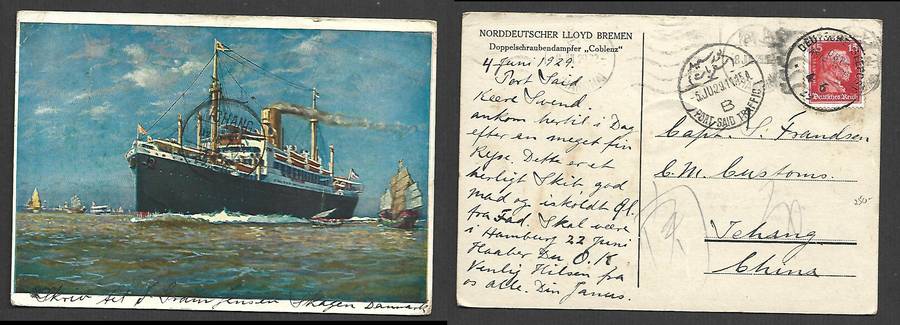 ICHANG
Skriv til
Skagen Danmark
NORDDEUTSCHER LLOYD BREMEN
Doppelschraubendampfer „Coblenz"
4 Juni 1929.
Port Said
Kære Svend.
ankom hertil i Dag
efter en meget fin
Rejse. Dette er et
herligt Skib god
mad og iskoldt Øl.
fra Fad. Skal være
i Hamburg 22 Juni
Haaber Du O.K
Venlig Hilsen fra
os alle. Din
PORT SAID TRAFFIC
B
DEUTSCHE
15 15
Deutsches Reich
Capt. S. Frandsen
C.M. Customs.
Ichang
China